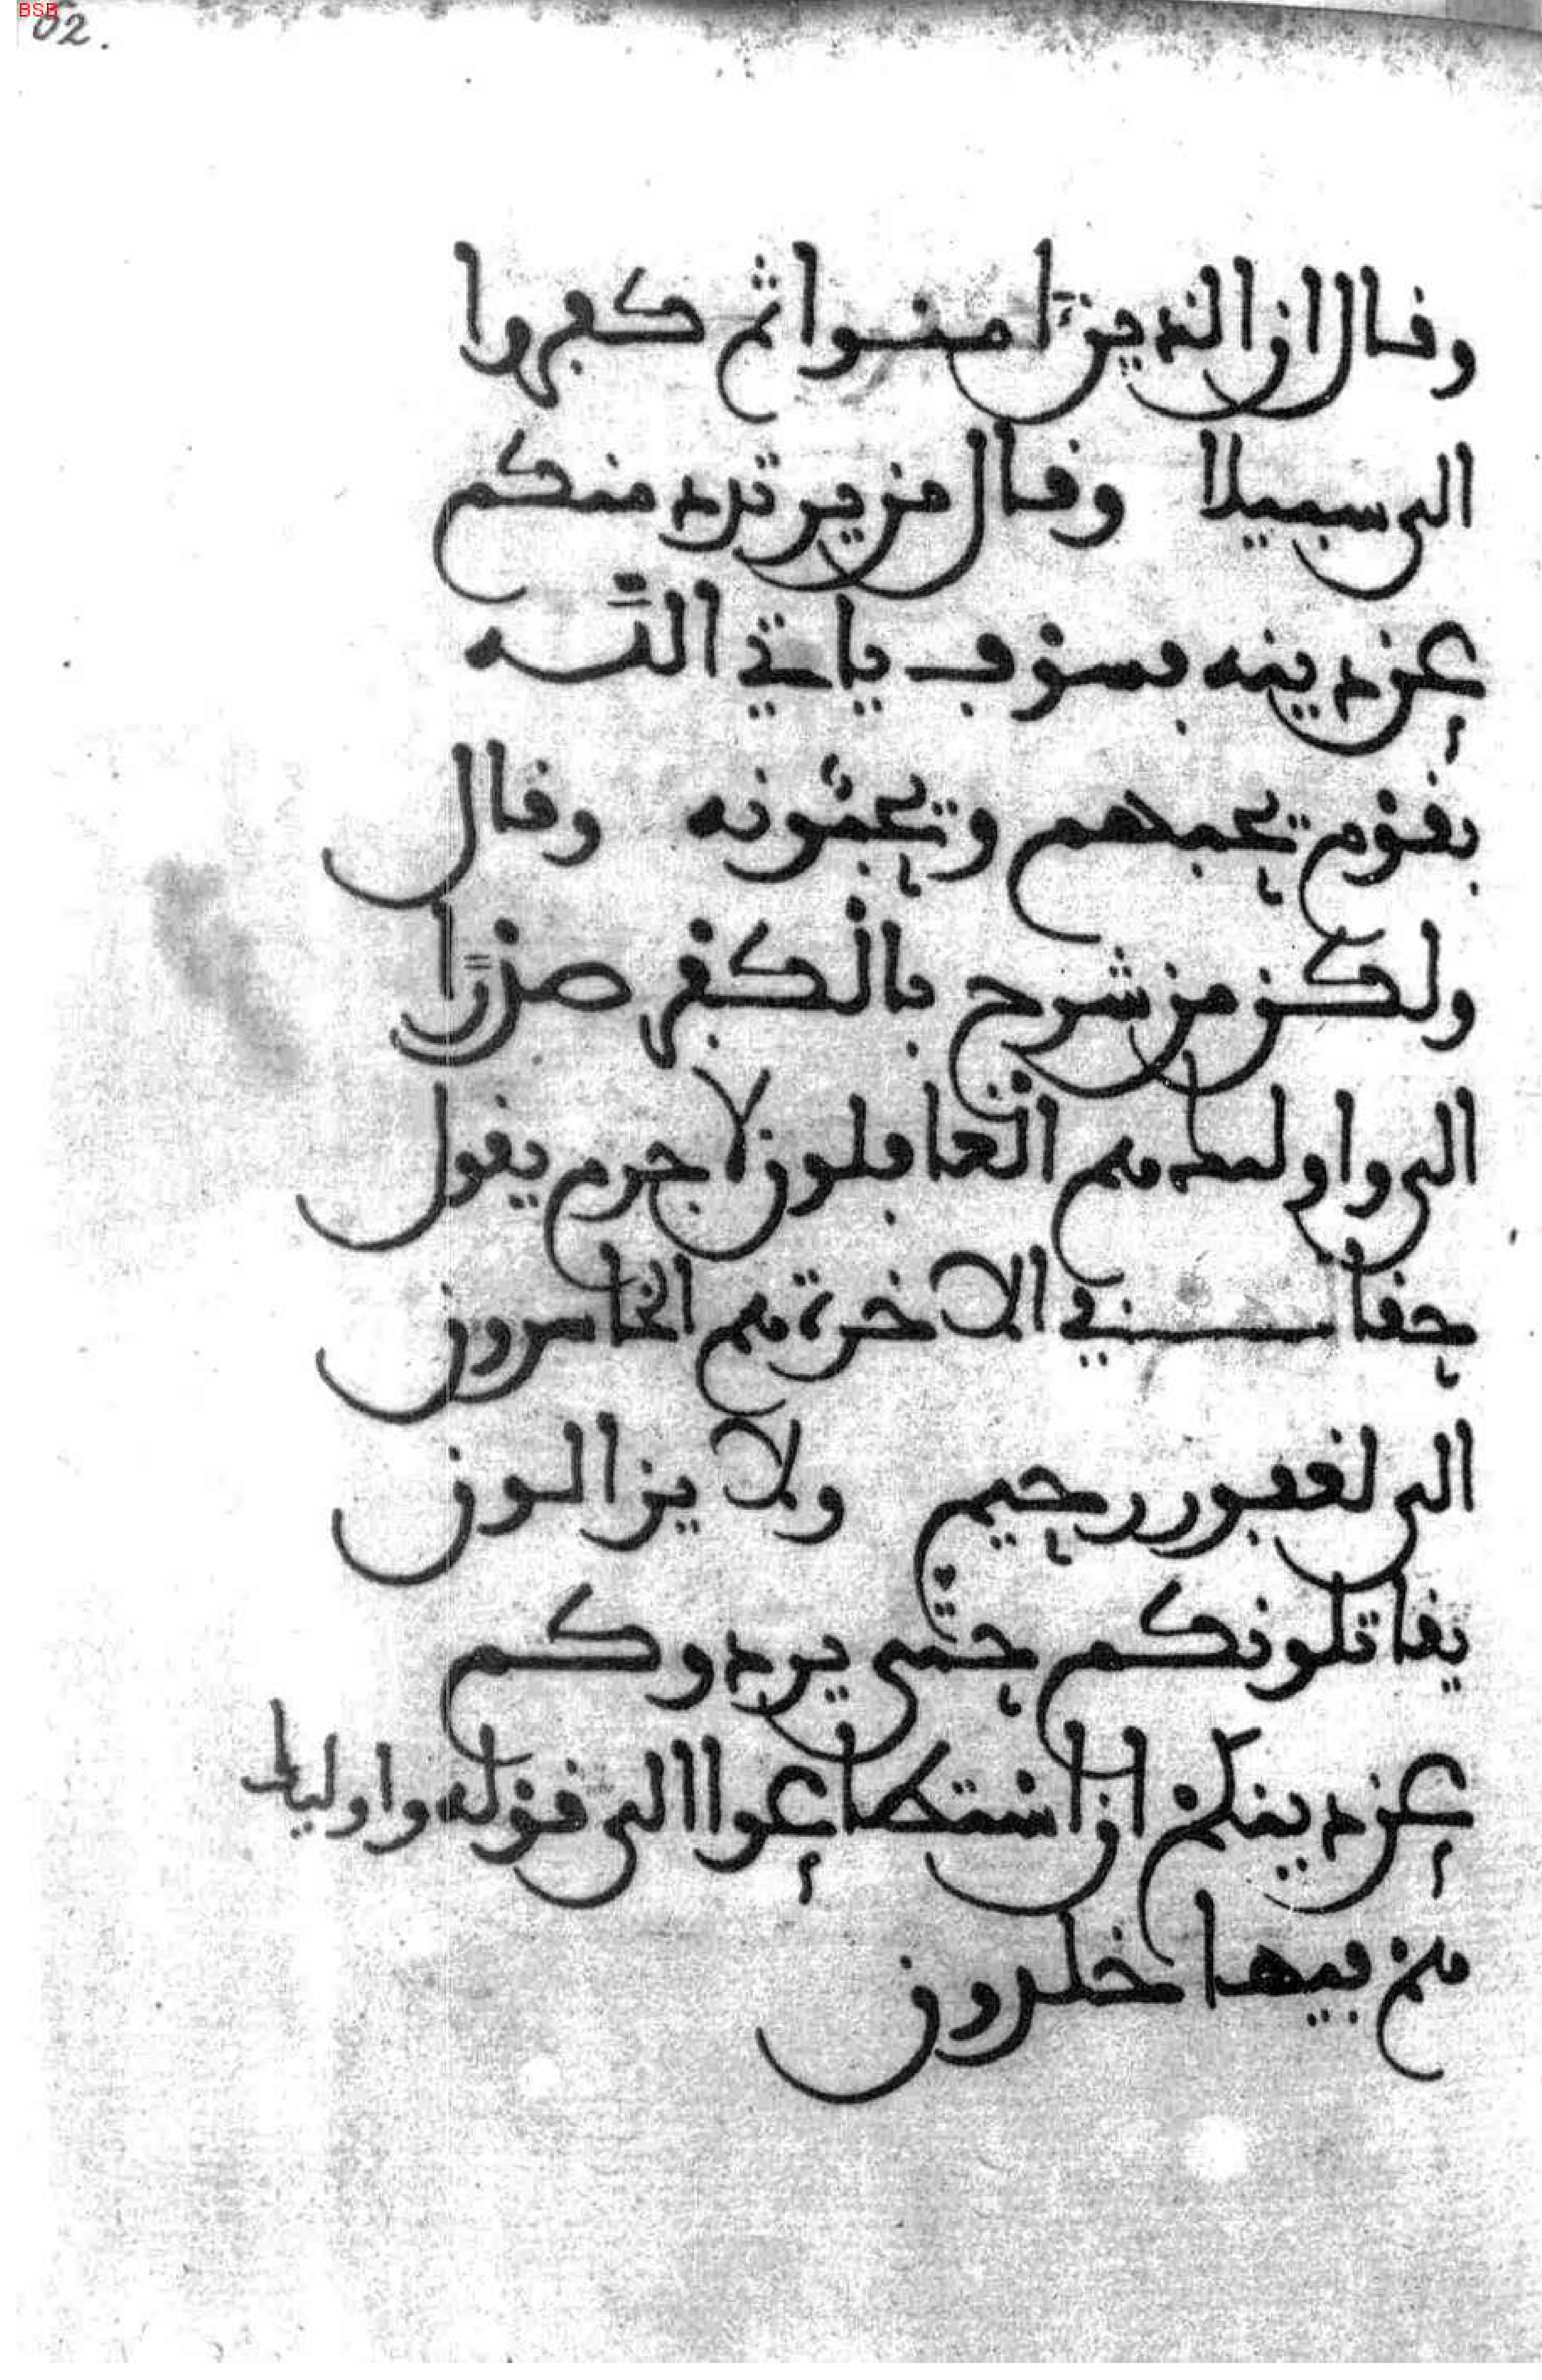 BSB
62.
وقال ان الذين امنوا ثم كفروا
الى سبيلا وقال من يرتدد منكم
عن دينه فسوف ياتي الله
بقوم يحبهم ويحبونه وقال
ولكن من شرح بالكفر صدرا
الى واوليك هم الغافلون لا جرم يقول
حقا في الاخرة هم الخاسرون
الى لغفور رحيم ولا يزالون
يقاتلونكم حتى يردوكم
عن دينكم ان استطاعوا الى قوله واوليك
هم فيها خلدون